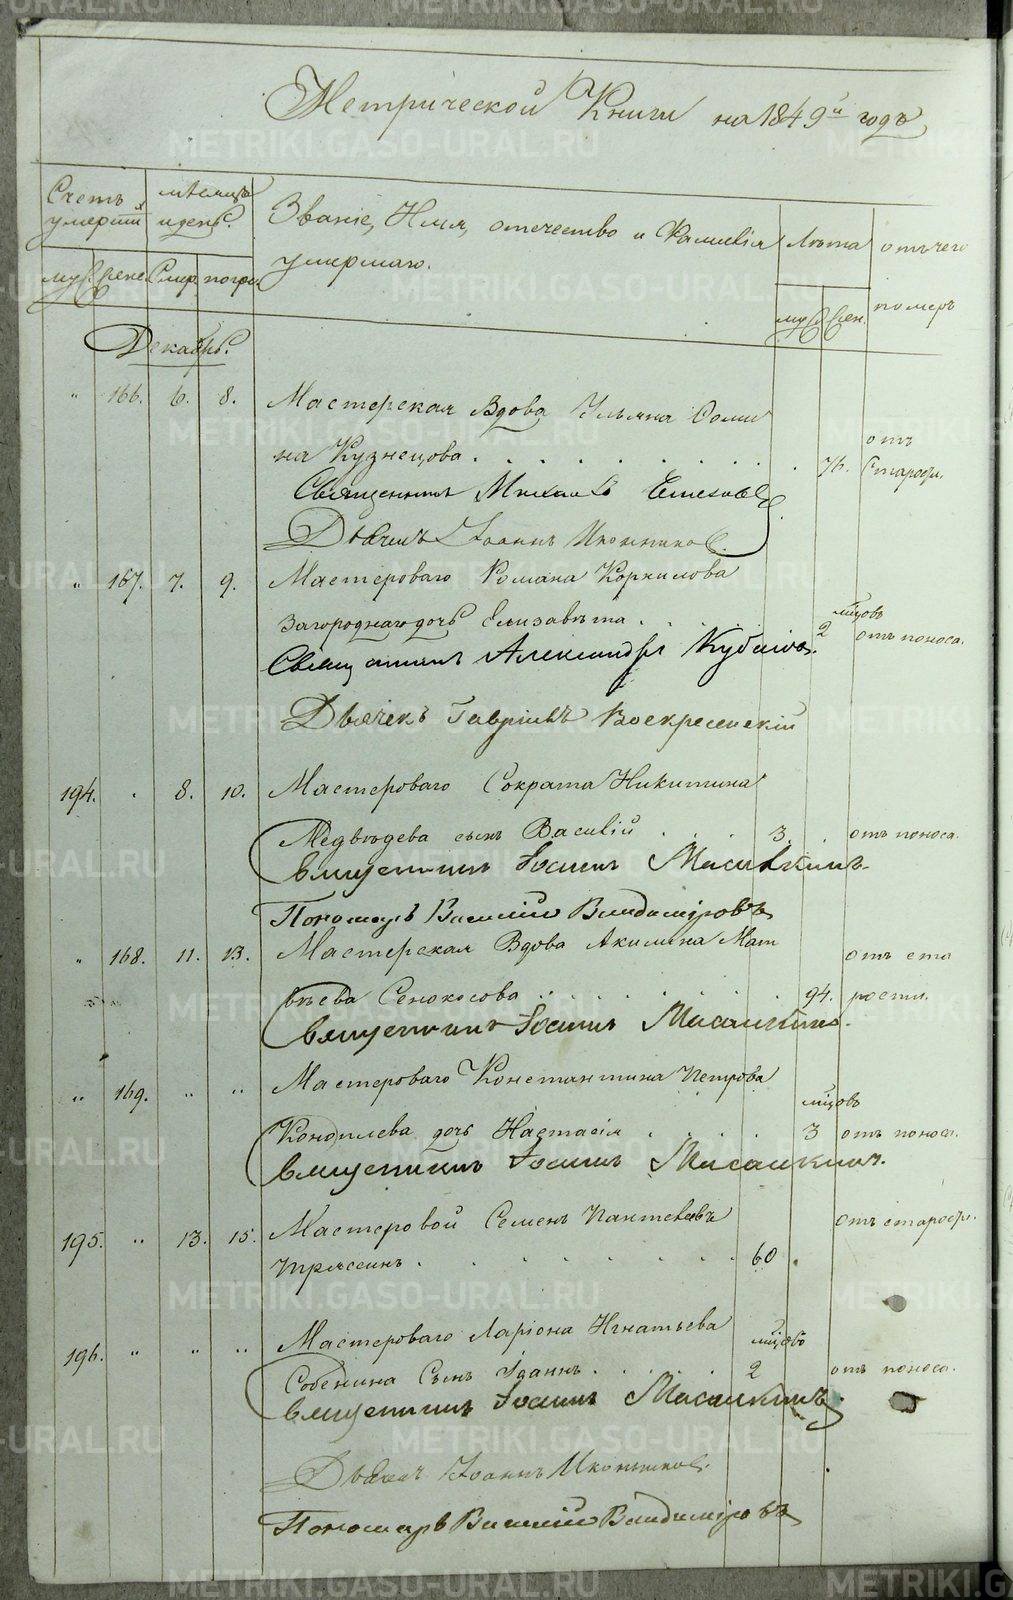 Метрической Книги на 1849й годъ
Счетъ умершихъ
мѣсяцъ и день.
Званіе, Имя, отечество и Фамилія умершаго.
Лѣта
отъ чего померъ
муж. жен. Смер. погре. муж. жен.
Декабрь.
" 166. 6. 8. Мастерская Вдова Ульяна Соми
на Кузнецова . . . . . . . 76. отъ Старости.
Священникъ Михаилъ
Дьячекъ Іоаннъ Иконниковъ.
" 167. 7. 9. Мастероваго Романа Корнилова
Загороднаго дочь Елизавѣта . . . . 2 мцовъ отъ поноса.
Священникъ Александръ
Дьячекъ Гавріилъ Воскресенскій
194. . 8. 10. Мастероваго Сократа Никитина
Медвѣдева сынъ Василій . . . 3 отъ поноса.
Священникъ Іоаннъ
Пономарь Василій Владиміровъ
" 168. 11. 13. Мастерская Вдова Акилина Мат
вѣева Сенокосова . . . . . . 94. отъ ста
рости.
Священникъ Іоаннъ
" 169. " " Мастероваго Константина Петрова
Коноплева дочь Настасія . . . 3 мцовъ отъ поноса.
Священникъ Іоаннъ
195. " 13. 15. Мастеровой Семенъ Пантелѣевъ
Трясинъ . . . . . . . 60 . отъ старости.
196. " " " Мастероваго Ларіона Игнатьева
Собенина Сынъ Іоаннъ . . . . 2 мцовъ отъ поноса.
Священникъ Іоаннъ
Дьячекъ Іоаннъ Иконниковъ.
Пономарь Василій Владиміровъ
METRIKI.GASO-URAL.RU